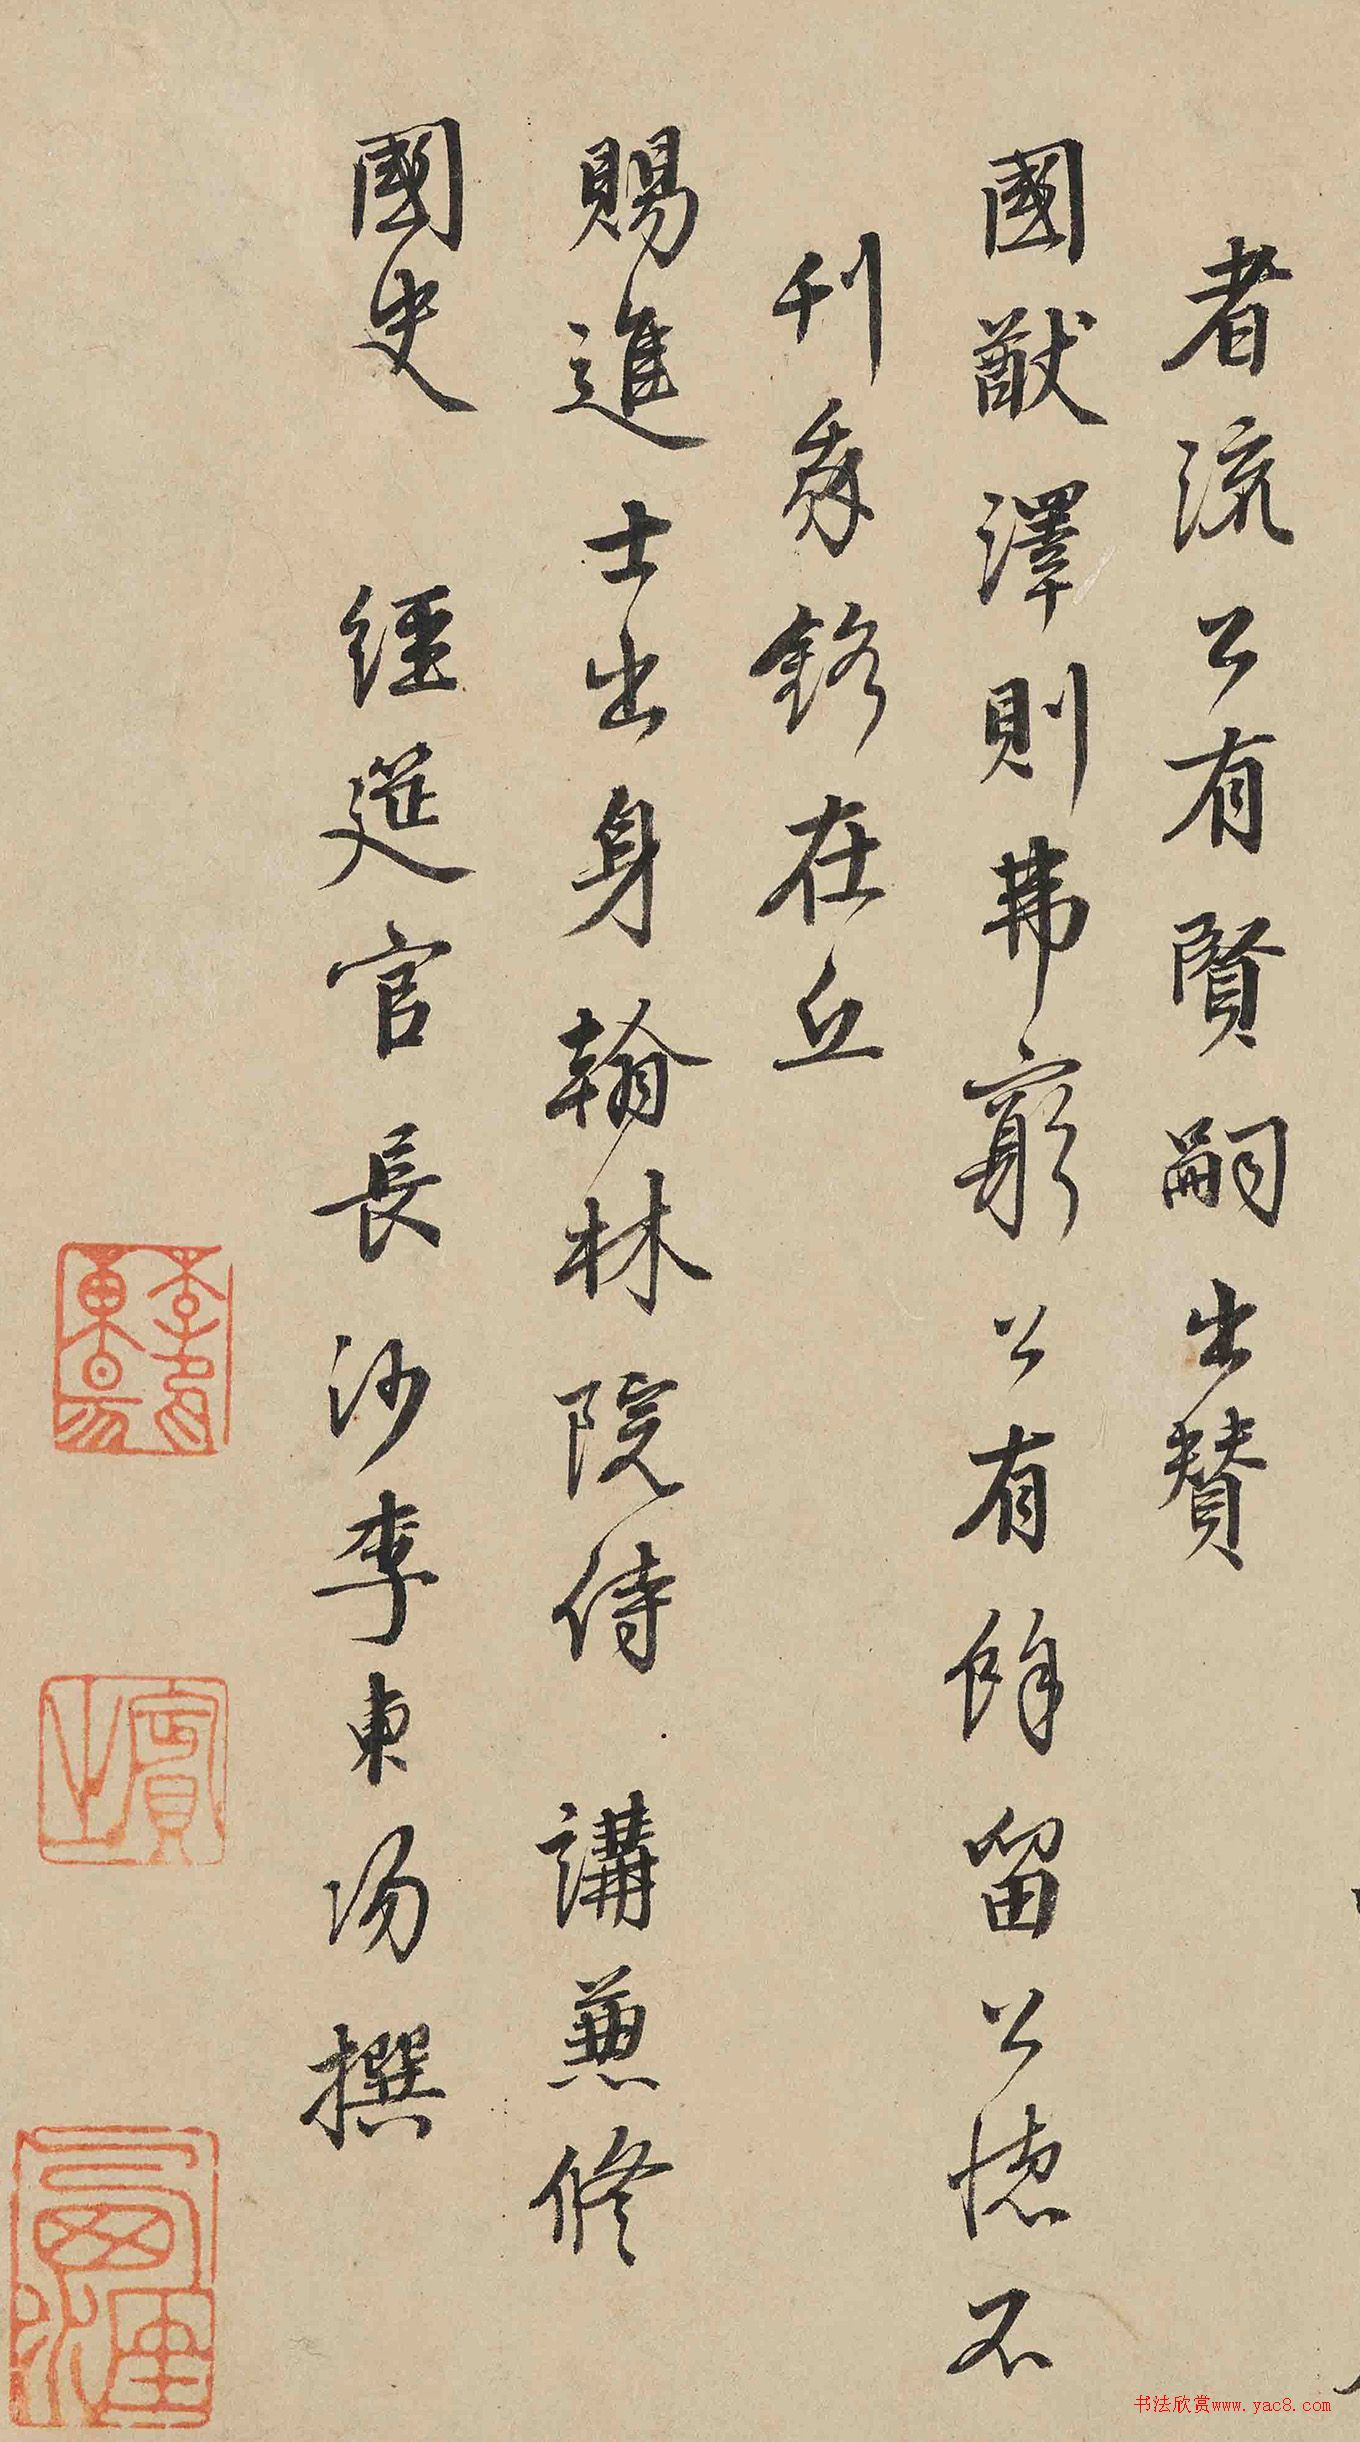 者流公有賢嗣出贊
國猷澤則弗窮公有餘留公德不
刊我銘在丘
賜進士出身翰林院侍講兼修
國史經筵官長沙李東陽撰
李東陽
賓之
书法欣赏www.yac8.com